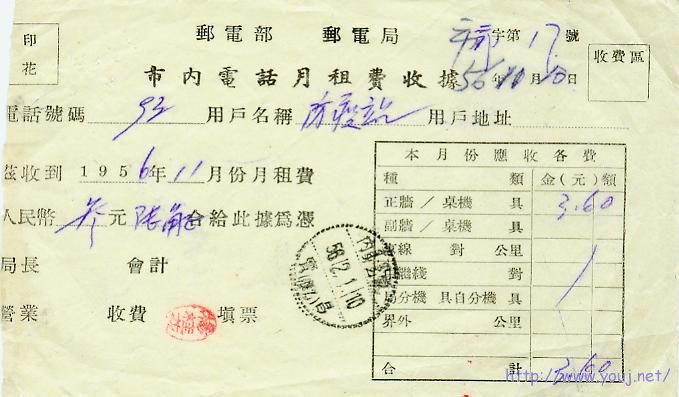 印花
郵電部 郵電局 字第17號
市內電話月租費收據 56年10月10日
收費區
電話號碼 93 用戶名稱 防疫站 用戶地址
茲收到1956年11月份月租費
人民幣 叁元陸角 合給此據爲憑
局長 會計
營業 收費 填票
本月份應收各費
種類 金(元)額
正牆/桌機 具 3.60
副牆/桌機 具
專線 對公里
對
同分機 具自分機 具
界外 公里
合計 3.60
56.12.1.10
http://www.youj.net/